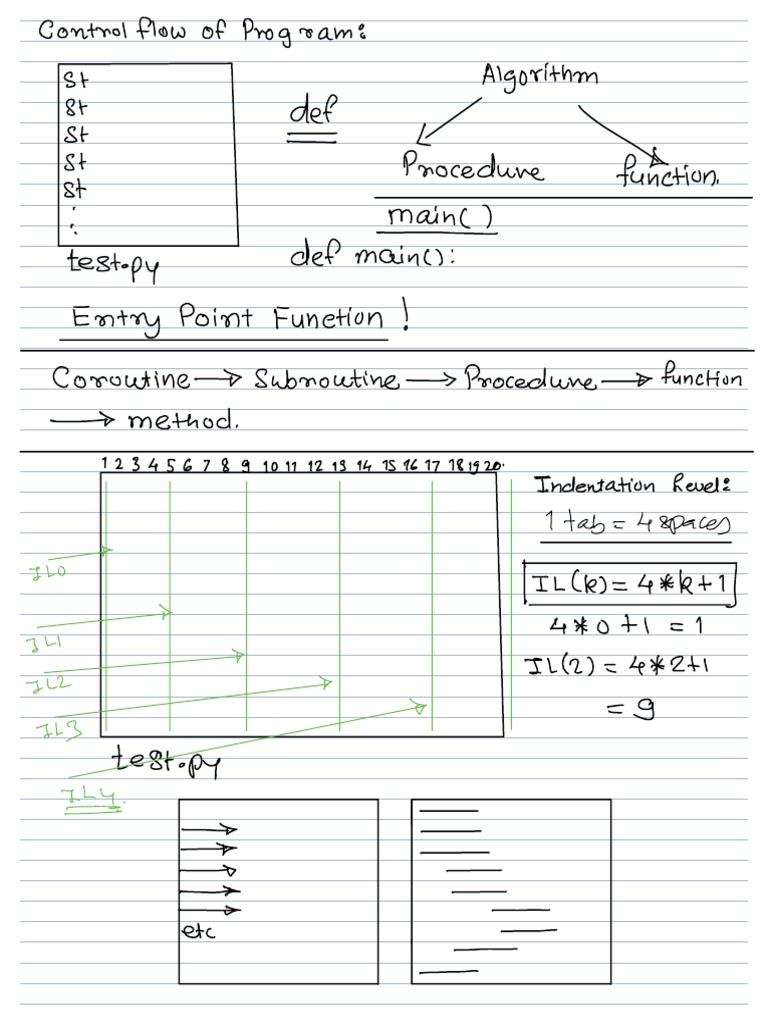 Control flow of Program:
st
st
st
st
st
:
:
test.py
def
Algorithm
Procedure function.
main( )
def main():
Entry Point Function!
Coroutine → Subroutine → Procedure → function
→ method.
1 2 3 4 5 6 7 8 9 10 11 12 13 14 15 16 17 18 19 20.
IL0
IL1
IL2
IL3
IL4.
test.py
Indentation Level:
1 tab = 4 spaces
IL(k) = 4*k+1
4*0+1 = 1
IL(2) = 4*2+1
= 9
etc